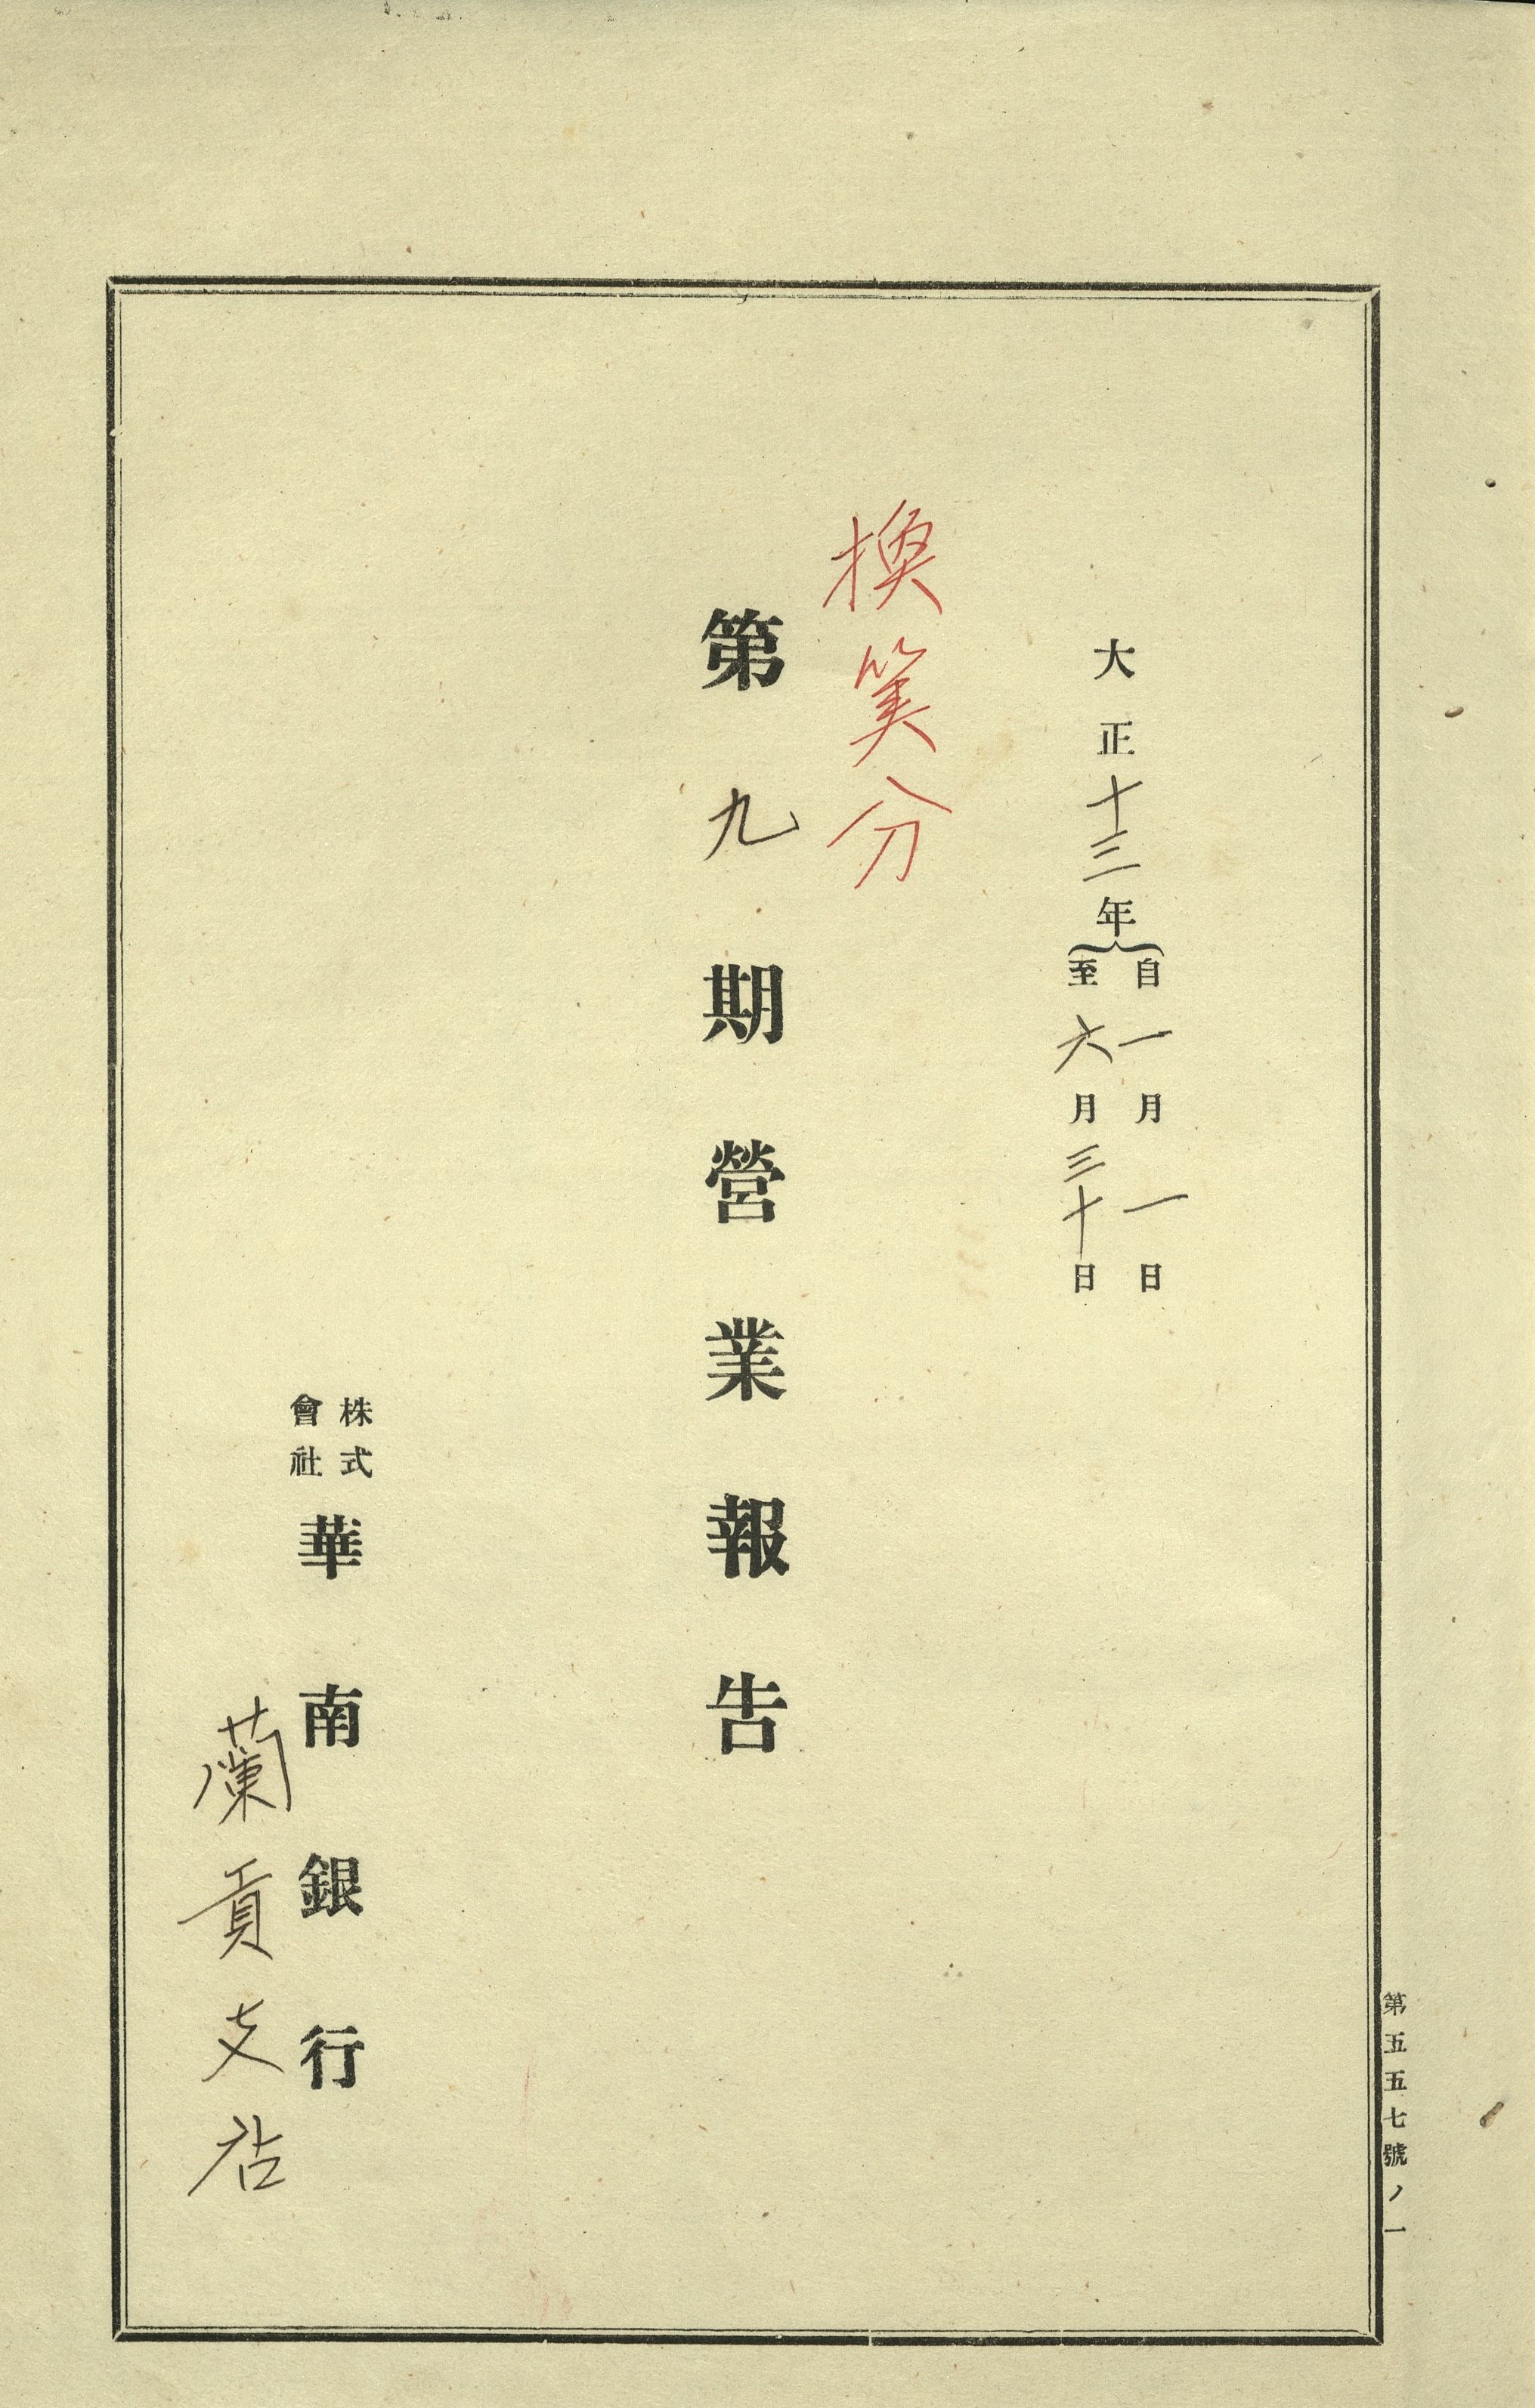 第五五七號ノ一
大正十三年
自一月一日
至六月三十日
換算分
第九期營業報告
株式
會社
華南銀行
蘭貢支店